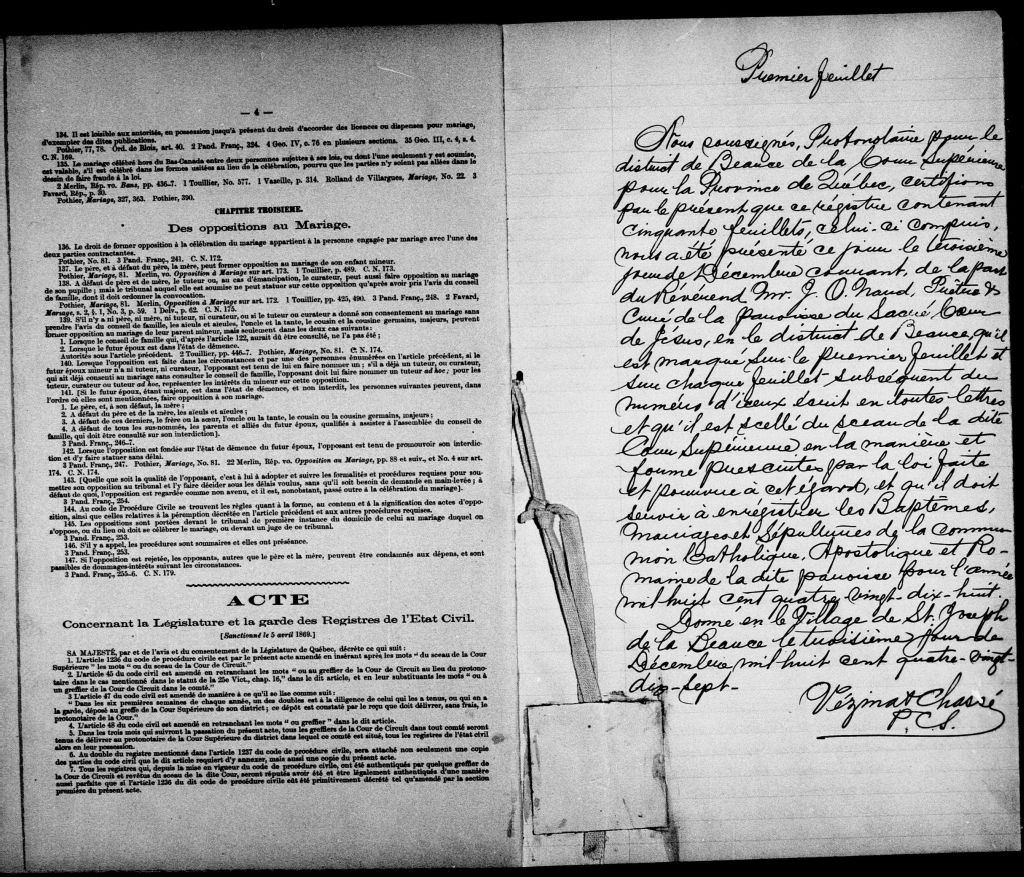 — 4 —
134. Il est loisible aux autorités, en possession jusqu'à présent du droit d'accorder des licences ou dispenses pour mariage,
d'exempter des dites publications.
Pothier, 77, 78. Ord. de Blois, art. 40. 2 Pand. Franç., 324. 4 Geo. IV, c. 76 en plusieurs sections. 35 Geo. III, c. 4, s. 4.
C. N. 169.
135. Le mariage célébré hors du Bas-Canada entre deux personnes sujettes à ses lois, ou dont l'une seulement y est soumise,
est valable, s'il est célébré dans les formes usitées au lieu de la célébration, pourvu que les parties n'y soient pas allées dans le
dessin de faire fraude à la loi.
2 Merlin, Rép. vo. Bans, pp. 436-7. 1 Touillier, No. 577. 1 Vazeille, p. 314. Rolland de Villargues, Mariage, No. 22. 3
Favard, Rép., p. 30.
Pothier, Mariage, 327, 363. Pothier, 390.
CHAPITRE TROISIEME.
Des oppositions au Mariage.
136. Le droit de former opposition à la célébration du mariage appartient à la personne engagée par mariage avec l'une des
deux parties contractantes.
Pothier, No. 81. 3 Pand. Franç., 241. C. N. 172.
137. Le père, et à défaut du père, la mère, peut former opposition au mariage de son enfant mineur.
Pothier, Mariage, 81. Merlin, vo. Opposition à Mariage sur art. 173. 1 Touillier, p. 489. C. N. 173.
138. A défaut de père et de mère, le tuteur ou, au cas d'émancipation, le curateur, peut aussi faire opposition au mariage
de son pupille; mais le tribunal auquel elle est soumise ne peut statuer sur cette opposition qu'après avoir pris l'avis du conseil
de famille, dont il doit ordonner la convocation.
Pothier, Mariage, 81. Merlin, Opposition à Mariage sur art. 172. 1 Touillier, pp. 425, 490. 3 Pand. Franç., 248. 2 Favard,
Mariage, s. 2, § 1, No. 3, p. 59. 1 Delv., p. 62. C. N. 175.
139. S'il n'y a ni père, ni mère, ni tuteur, ni curateur, ou si le tuteur ou curateur a donné son consentement au mariage sans
prendre l'avis du conseil de famille, les aïeuls et aïeules, l'oncle et la tante, le cousin et la cousine germains, majeurs, peuvent
former opposition au mariage de leur parent mineur, mais seulement dans les deux cas suivants:
1. Lorsque le conseil de famille qui, d'après l'article 122, aurait dû être consulté, ne l'a pas été;
2. Lorsque le futur époux est dans l'état de démence.
Autorités sous l'article précédent. 2 Touillier, pp. 446-7. Pothier, Mariage, No. 81. C. N. 174.
140. Lorsque l'opposition est faite dans les circonstances et par une des personnes énumérées en l'article précédent, si le
futur époux mineur n'a ni tuteur, ni curateur, l'opposant est tenu de lui en faire nommer un; s'il a déjà un tuteur ou curateur,
qui ait déjà consenti au mariage sans consulter le conseil de famille, l'opposant doit lui faire nommer un tuteur ad hoc; pour les
tuteur, curateur ou tuteur ad hoc, représenter les intérêts du mineur sur cette opposition.
141. [Si le futur époux, étant majeur, est dans l'état de démence, et non interdit, les personnes suivantes peuvent, dans
l'ordre où elles sont mentionnées, faire opposition à son mariage.
1. Le père, et, à son défaut, la mère;
2. A défaut du père et de la mère, les aïeuls et aïeules;
3. A défaut de ces derniers, le frère ou la sœur, l'oncle ou la tante, le cousin ou la cousine germains, majeurs;
4. A défaut de tous les sus-nommés, les parents et alliés du futur époux, qualifiés à assister à l'assemblée du conseil de
famille, qui doit être consulté sur son interdiction].
3 Pand. Franç., 246-7.
142. Lorsque l'opposition est fondée sur l'état de démence du futur époux, l'opposant est tenu de promouvoir son interdic-
tion et d'y faire statuer sans délai.
3 Pand. Franç., 247. Pothier, Mariage, No. 81. 22 Merlin, Rép. vo. Opposition au Mariage, pp. 88 et suiv., et No. 4 sur art.
174. C. N. 174.
143. [Quelque que soit la qualité de l'opposant, c'est à lui à adopter et suivre les formalités et procédures requises pour sou-
mettre son opposition au tribunal et l'y faire décider sous les délais voulus, sans qu'il soit besoin de demande en main-levée; à
défaut de quoi, l'opposition est regardée comme non avenue, et il est, nonobstant, passé outre à la célébration du mariage].
3 Pand. Franç., 254.
144. Au Code de Procédure Civile se trouvent les règles quant à la forme, au contenu et à la signification des actes d'oppo-
sition, ainsi que celles relatives à la péremption décrétée en l'article précédent et aux autres procédures requises.
145. Les oppositions sont portées devant le tribunal de première instance du domicile de celui au mariage duquel on
s'oppose, ou du lieu où doit se célébrer le mariage, ou devant un juge de ce tribunal.
3 Pand. Franç., 253.
146. S'il y a appel, les procédures sont sommaires et elles ont préséance.
3 Pand. Franç., 253.
147. Si l'opposition est rejetée, les opposants, autres que le père et la mère, peuvent être condamnés aux dépens, et sont
passibles de dommages-intérêts suivant les circonstances.
3 Pand. Franç., 255-6. C. N. 179.
ACTE
Concernant la Législature et la garde des Registres de l'Etat Civil.
[Sanctionné le 5 avril 1869.]
SA MAJESTÉ, par et de l'avis et du consentement de la Législature de Québec, décrète ce qui suit:
1. L'article 1236 du code de procédure civile est par le présent acte amendé en insérant après les mots "du sceau de la Cour
Supérieure" les mots "ou du sceau de la Cour de Circuit."
2. L'article 45 du code civil est amendé en retranchant les mots "ou au greffier de la Cour de Circuit au lieu du protono-
taire dans le cas mentionné dans le statut de la 25e Vict., chap. 16," dans le dit article, et en leur substituants les mots "ou à
un greffier de la Cour de Circuit dans le comté."
3 L'article 47 du code civil est amendé de manière à ce qu'il se lise comme suit:
"Dans les six premières semaines de chaque année, un des doubles est à la diligence de celui qui les a tenus, ou qui en a
la garde, déposé au greffe de la Cour Supérieure de son district; ce dépôt est constaté par le reçu que doit délivrer, sans frais, le
protonotaire de la Cour."
4. L'article 48 du code civil est amendé en retranchant les mots "ou greffier" dans le dit article.
5. Dans les trois mois qui suivront la passation du présent acte, tous les greffiers de la Cour de Circuit dans tout comté seront
tenus de délivrer au protonotaire de la Cour Supérieure du district dans lequel ce comté est situé, tous les registres de l'état civil
alors en leur possession.
6. Au double du registre mentionné dans l'article 1237 du code de procédure civile, sera attaché non seulement une copie
des parties du code civil que le dit article requiert d'y annexer, mais aussi une copie du présent acte.
7. Tous les registres qui, depuis la mise en vigueur du code de procédure civile, ont été authentiqués par quelque greffier de
la Cour de Circuit et revêtus du sceau de la dite Cour, seront réputés avoir été et être légalement authentiqués d'une manière
aussi parfaite que si l'article 1236 du dit code de procédure civile eût été primitivement décrété tel qu'amendé par la section
première du présent acte.
Premier feuillet
Nous soussignés, Protonotaire pour le
district de Beauce de la Cour Supérieure
pour la Province de Québec, certifions
par le présent que ce régistre contenant
cinquante feuillets, celui-ci compris,
nous a été présenté ce jour le troisième
jour de Décembre courant, de la part
du Révérend Mr. J. O. Naud, Prêtre &
Curé de la paroisse du Sacré Cœur
de Jésus, en le district de Beauce, qu'il
est marqué sur le premier feuillet et
sur chaque feuillet subséquent du
numéro d'iceux écrit en toutes lettres
et qu'il est scellé du sceau de la dite
Cour Supérieure, en la manière et
forme prescrites par la loi faite
et pourvue à cet égard, et qu'il doit
servir à enregistrer les Baptêmes,
Mariages et Sépultures de la commu
nion Catholique, Apostolique et Ro-
maine de la dite paroisse pour l'année
mil huit cent quatre-vingt-dix-huit.
Donné en le Village de St. Joseph
de la Beauce le troisième jour de
Décembre mil huit cent quatre-vingt-
dix-sept-
Vézina & Chassé
P. C. S.